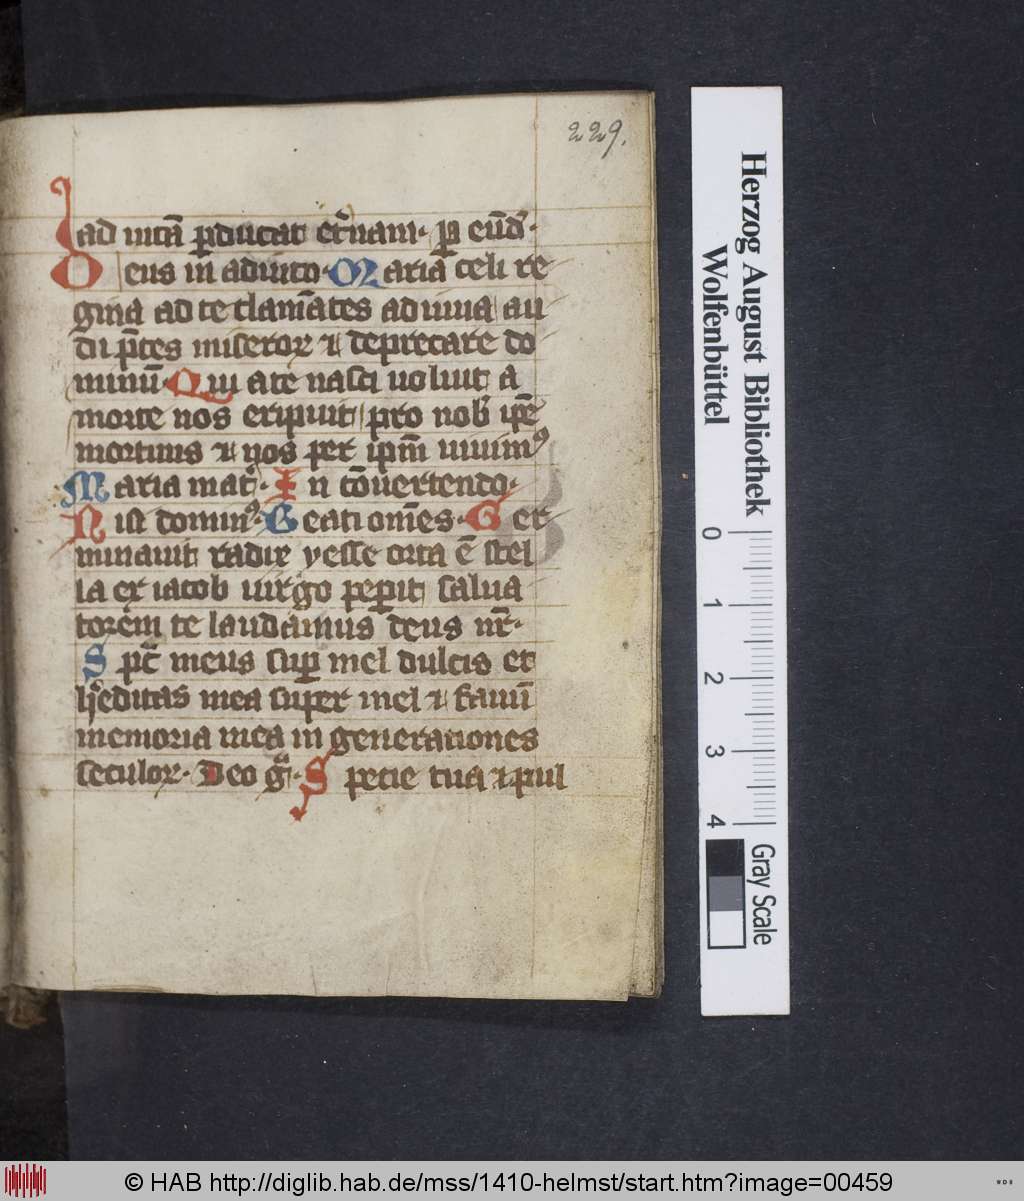 229.
ad uitā ꝑducat et̾nam · ꝑ eūd̾ ·
Deus in adiuto · Maria celi re
gina ad te clamātes adiuua au
di p̄ces miseroꝝ ⁊ deprecare do
minū · Qui a te nasci uoluit a
morte nos eripuit pro nob̾ ip̄e
mortuus ⁊ nos per ip̄m uiuimꝰ
Maria mat̾ · In cōuertendo ·
Nisi dominꝰ · Beati om̄es · Ger
minauit radix yesse orta ē stel
la ex iacob uirgo peperit salua
torem te laudamus deus nr̄ ·
Sp̄c meus suꝑ mel dulcis et
h̾editas mea super mel ⁊ fauū
memoria mea in generationes
seculoꝝ · Deo gͣ · Specie tua ⁊ pul
Herzog August Bibliothek
Wolfenbüttel
0 1 2 3 4
Gray Scale
© HAB http://diglib.hab.de/mss/1410-helmst/start.htm?image=00459